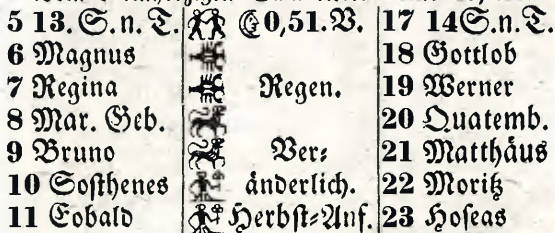 5 13. S. n. T. ☾ 0,51. V. 17 14 S. n. T.
6 Magnus 18 Gottlob
7 Regina Regen. 19 Werner
8 Mar. Geb. 20 Quatemb.
9 Bruno Ver⸗ 21 Matthäus
10 Sosthenes änderlich. 22 Moritz
11 Eobald Herbst⸗Anf. 23 Hoseas